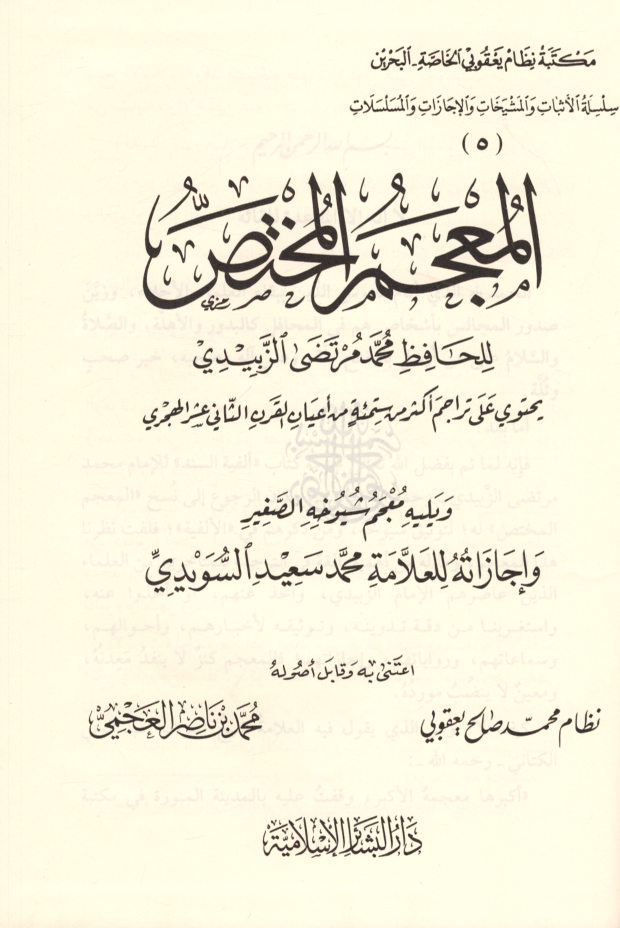 مكتبة نظام يعقوبي الخاصة - البحرين
سلسلة الأثبات والمشيخات والإجازات والمسلسلات
(٥)
المعجم المختص
للحافظ محمد مرتضى الزبيدي
يحتوي على تراجم أكثر من ستمئة من أعيان القرن الثاني عشر الهجري
ويليه معجم شيوخه الصغير
وإجازاته للعلامة محمد سعيد السويدي
اعتنى به وقابل أصوله
نظام محمد صالح يعقوبي
محمد بن ناصر العجمي
دار البشائر الإسلامية